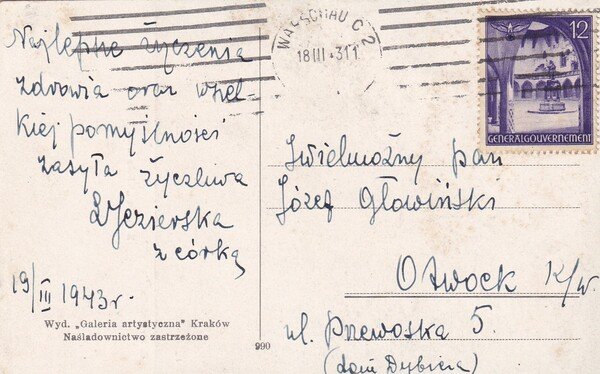 Najlepsze życzenia
zdrowia oraz wszel-
kiej pomyślności
zasyła życzliwa
Jezierska
z córką
19/III 1943 r.
Wyd. „Galeria artystyczna" Kraków
Naśladownictwo zastrzeżone
990
WARSCHAU C 2
18 III 43 11
12
GENERALGOUVERNEMENT
Jwielmożny pan
Józef Głowiński
Otwock k/w.
ul. Przewoska 5.
(dom Dybicza)